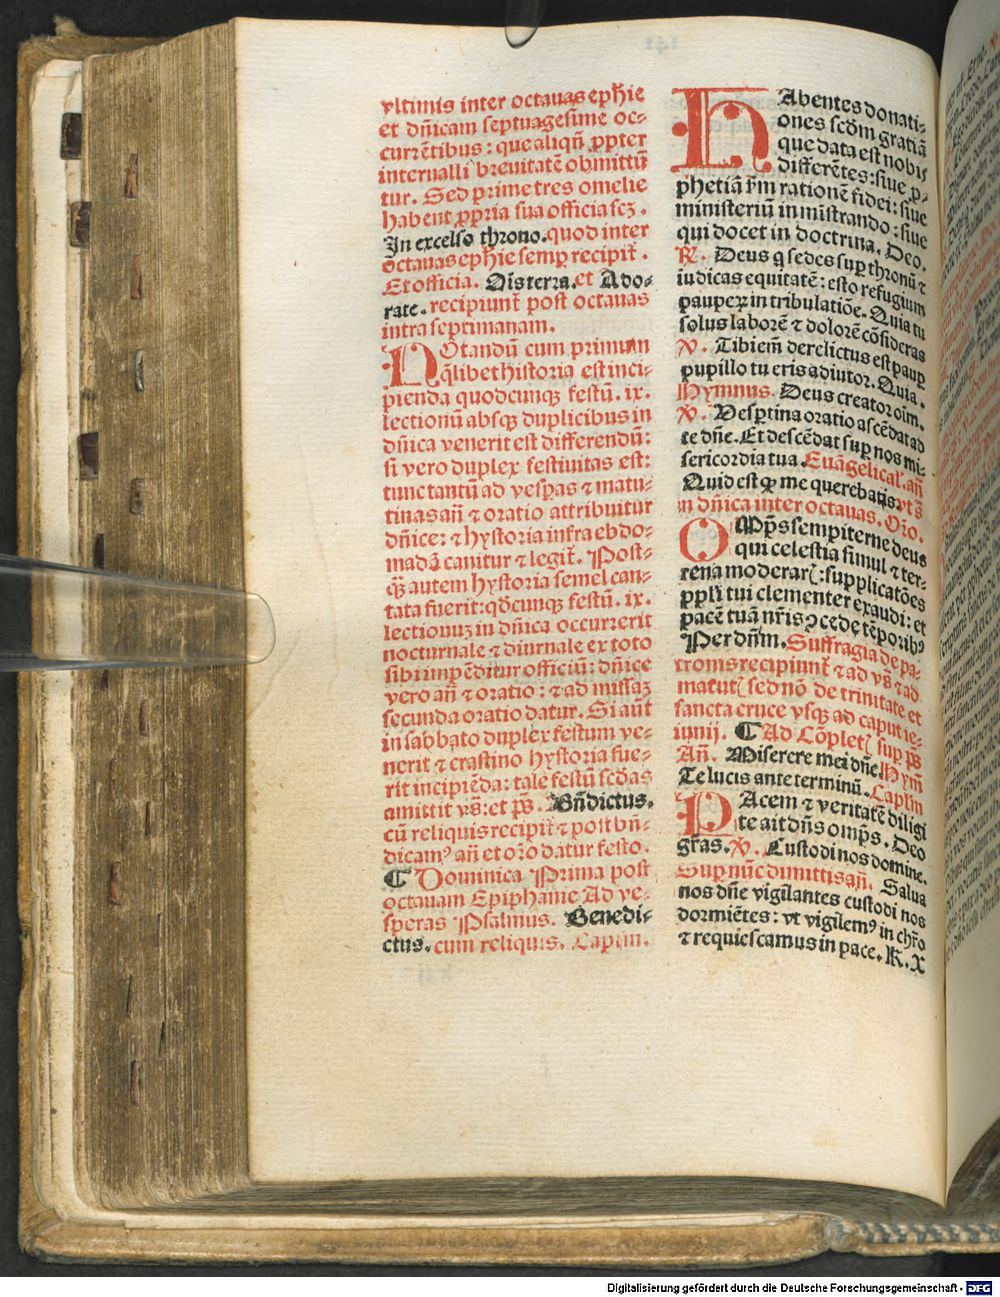 vltimis inter octauas ephīe
et dn̄icam septuagesime oc-
currētibus: que aliqn̄ ꝓpter
interualli breuitatē obmittū
tur. Sed prime tres omelie
habent ꝓpria sua officia scꝫ.
In excelso throno. quod inter
octauas ephīe semꝑ recipit̄.
Et officia. Dis terra. et Ado-
rate. recipiunt̄ post octauas
intra septimanam.
NOtandū cum primum
q̄libet historia est inci-
pienda quodcunqꝫ festū. ix.
lectionū absqꝫ duplicibus in
dn̄ica venerit est differendū:
si vero duplex festiuitas est:
tunc tantū ad vesꝑas ⁊ matu-
tinas an̄ ⁊ oratio attribuitur
dn̄ice: ⁊ hystoria infra ebdo-
madā canitur ⁊ legit̄. Post-
qꝫ̄ autem hystoria semel can-
tata fuerit: qd̄cunqꝫ festū. ix.
lectionuꝫ in dn̄ica occurrerit
nocturnale ⁊ diurnale ex toto
sibi impēditur officiū: dn̄ice
vero an̄ ⁊ oratio: ⁊ ad missaꝫ
secunda oratio datur. Si aūt
in sabbato duplex festum ve-
nerit ⁊ crastino hystoria fue-
rit incipiēda: tale festū scd̄as
amittit vs̄: et ps̄. Bn̄dictus.
cū reliquis recipit̄ ⁊ post bn̄-
dicamꝰ an̄ et or̄o datur festo.
¶ Dominica Prima post
octauam Epiphanie Ad ve-
speras Psalmus. Benedi-
ctus. cum reliquis. Caplm̄.
HAbentes donati-
ones scd̄m gratiā
que data est nobis
differētes: siue ꝓ-
phetiā s̄m rationē fidei: siue
ministeriū in mīstrando: siue
qui docet in doctrina. Deo.
℟. Deus q̄ sedes suꝑ thronū ⁊
iudicas equitatē: esto refugium
pauperꝝ in tribulatiōe. Quia tu
solus laborē ⁊ dolorē cōsideras
℣. Tibiem̄ derelictus est pauꝑ
pupillo tu eris adiutor. Quia.
Hymnus. Deus creator oīm.
℣. Vesꝑtina oratio ascēdat ad
te dn̄e. Et descēdat suꝑ nos mi-
sericordia tua. Euāgelical̄. an̄
Quid est ꝙ me querebatis vt s̄
in dn̄ica inter octauas. Or̄o.
OMp̄s sempiterne deus
qui celestia simul ⁊ ter-
rena moderar̄: supplicatōes
ppl̄i tui clementer exaudi: et
pacē tuā nr̄is ꝯcede tēporibꝰ
Per dn̄m. Suffragia de pa-
tronis recipiunt̄ ⁊ ad vs̄ ⁊ ad
matut̄ sed nō de trinitate et
sancta cruce vsqꝫ ad caput ie-
iunij. ¶ Ad Cōplet̄ suꝑ ps̄
An̄. Miserere mei dn̄e. Hym̄
Te lucis ante terminū. Caplm̄
PAcem ⁊ veritatē diligi
te ait dn̄s omp̄s. Deo
gr̄as. ℣. Custodi nos domine.
Suꝑ nūc dimittis an̄. Salua
nos dn̄e vigilantes custodi nos
dormiētes: vt vigilemꝰ in chr̄o
⁊ requiescamus in pace. K. X
Digitalisierung gefördert durch die Deutsche Forschungsgemeinschaft - DFG